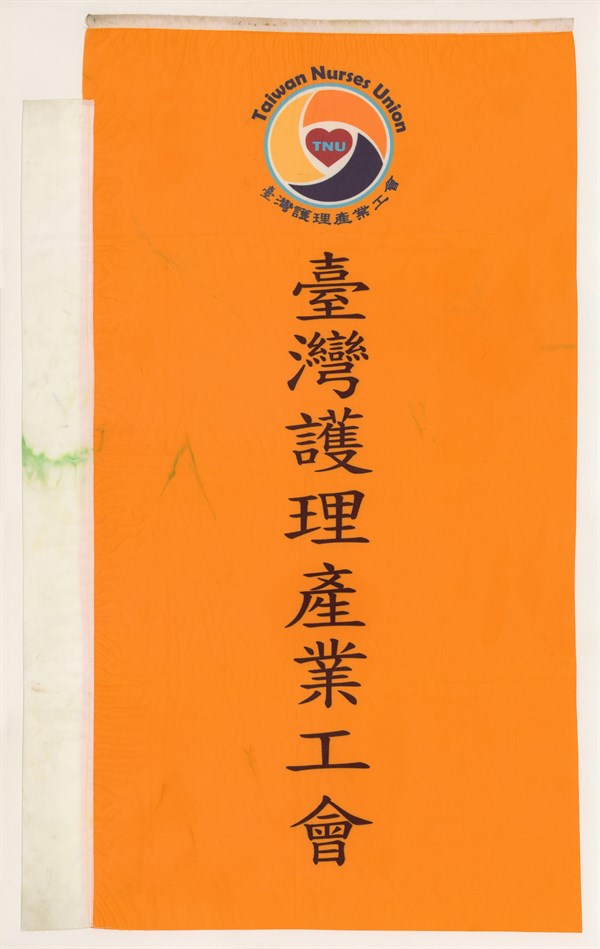 Taiwan Nurses Union
TNU
臺灣護理產業工會
臺灣護理產業工會